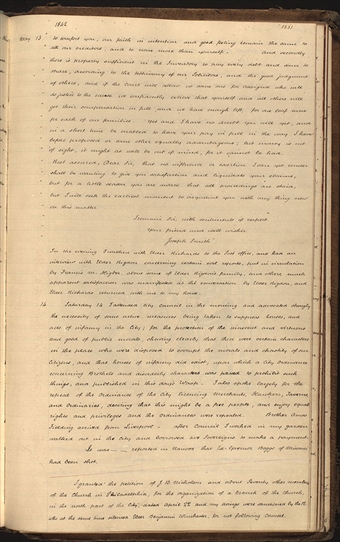 1842
1331
May 13 to comfort you, our faith is intention and good feeling remain the same to
all our creditors, and to none more than yourself. And secondly
there is property sufficient in the Inventory to pay every debt and some to
spare, according to the testimony of our Solicitors, and the good judgment
of others, and if the Court will allow us some one for assignee who will
do justice to the cause, we confidently believe that yourself and all others will
get their compensation in full, and we have enough left for
for each of our families. Yet
in a short time be enabled to have your pay in full in the way I have
before proposed or some other equally advantageous, but money is out
of sight, it might as well be out of mind, for it cannot be had.
Rest assured, Dear Sir, that no influence or exertion I can yet render
shall be wanting to give you satisfaction and liquidate your claims,
but for a little season you are aware that all proceedings are stain,
but I will seek the earliest moment to acquaint you with any thing new
on this matter.
I remain Sir with sentiments of respect
Your friend and well wisher
Joseph Smith"
In the evening I walked with Elder Richards to the Post office, and had an
interview with Elder Rigdon concerning certain evil reports, put in circulation
by Francis M. Higbee, about some of Elder Rigdon's family, and others, much
apparent satisfaction was manifested at the conversation by Elder Rigdon, and
Elder Richards returned with me to my house.
14 Saturday 14. I attended City Council in the morning and advocated strongly
the necessity of some active measures being taken to suppress houses, and
acts of infamy in the City; for the protection of the innocent and virtuous
and good of public morals, shewing clearly that there were certain characters
in the place who were disposed to corrupt the morals and chastity of our
Citizens, and that houses of infamy did exist, upon which a City Ordinance
concerning Brothels and disorderly characters was passed to prohibit such
things, and published in this day's Wasp. I also spoke largely for the
repeal of the Ordinance of the City licensing Merchants, Hawkers, Taverns
and Ordinaries, desiring that this might be a free people, and enjoy equal
rights and privileges and the Ordinances were repealed. Brother Amos
Fielding arrived from Liverpool. After Council I worked in my garden
walked out in the City and borrowed two Sovereigns to make a payment.
It was reported in Nauvoo that Ex-Governor Boggs of Missouri
had been shot.
I granted the petition of J. B. Nicholson and about Seventy other members
of the Church in Philadelphia, for the organization of a Branch of the Church,
in the north part of the City; dated April 2nd and my doings were sanctioned by the 12
who at the same time silenced Elder Benjamin Winchester for not following counsel.